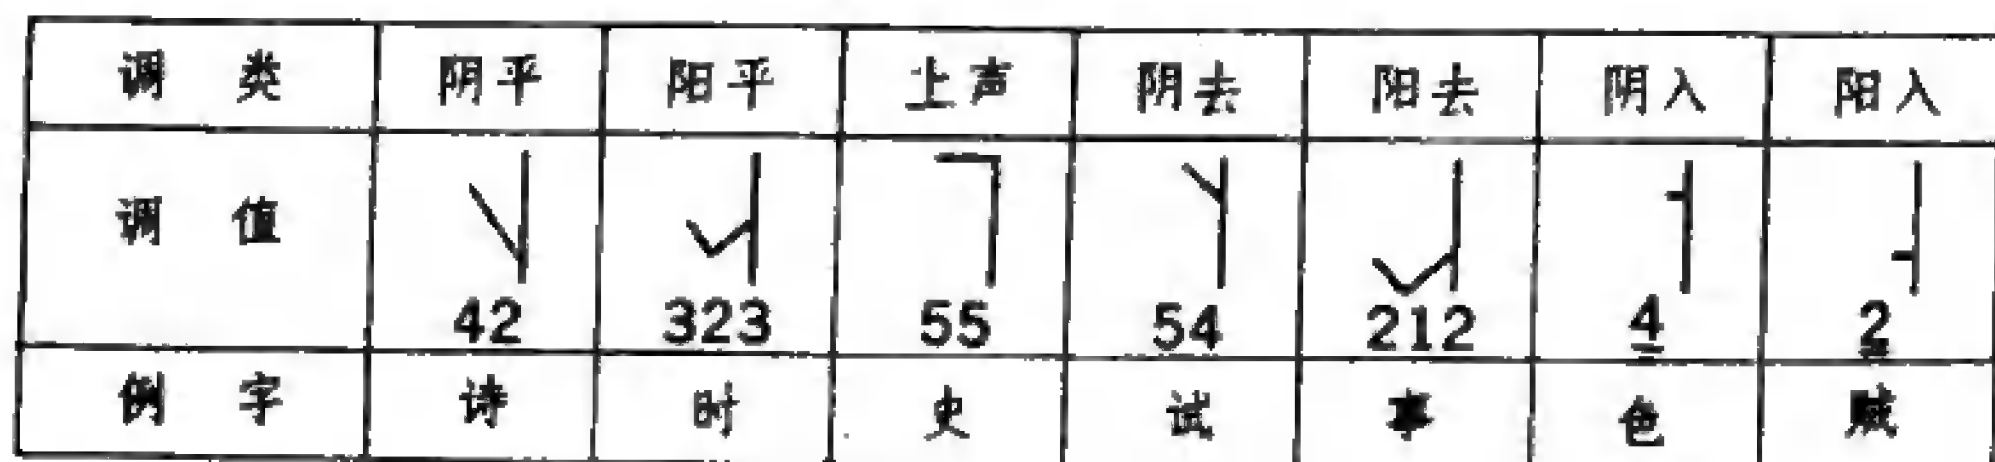 调类 阴平 阳平 上声 阴去 阳去 阴入 阳入
调值 42 323 55 54 212 4 2
例字 诗 时 史 试 事 色 贼